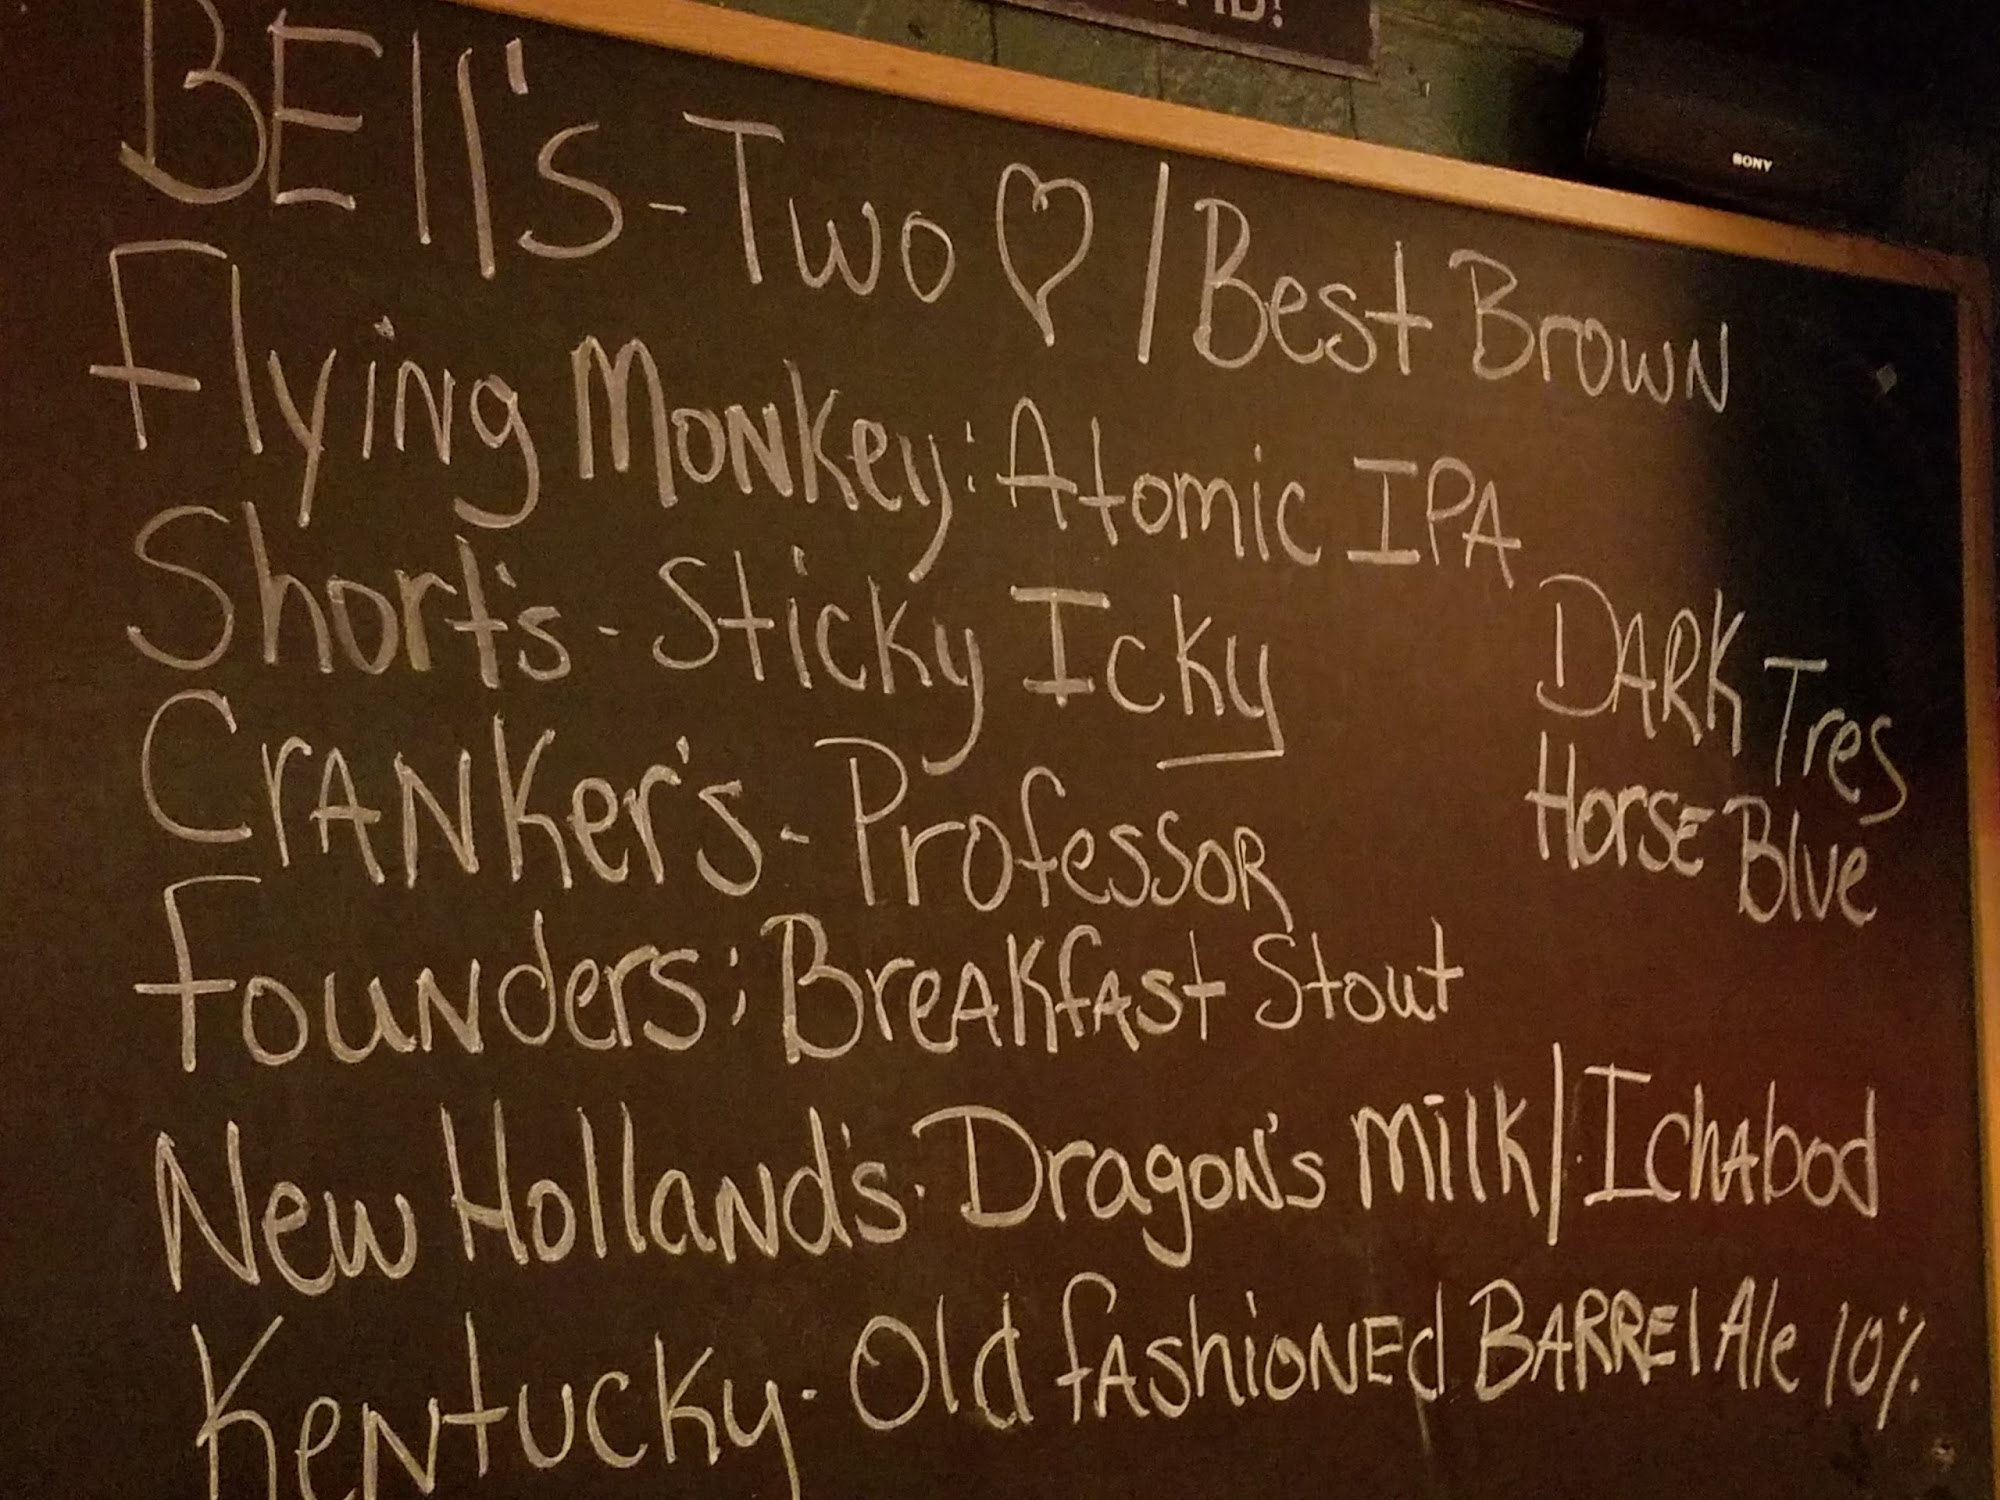 SONY
BEll's - Two ♡ / Best Brown
Flying Monkey: Atomic IPA
Short's - Sticky Icky
CrANKer's - ProfessoR
FouNders: BreAKfAst Stout
DARK Tres
HorsE Blue
New HollaNd's - DragoN's Milk / IchAbod
KeNtucky - Old fAshioNEd BARREl Ale 10%